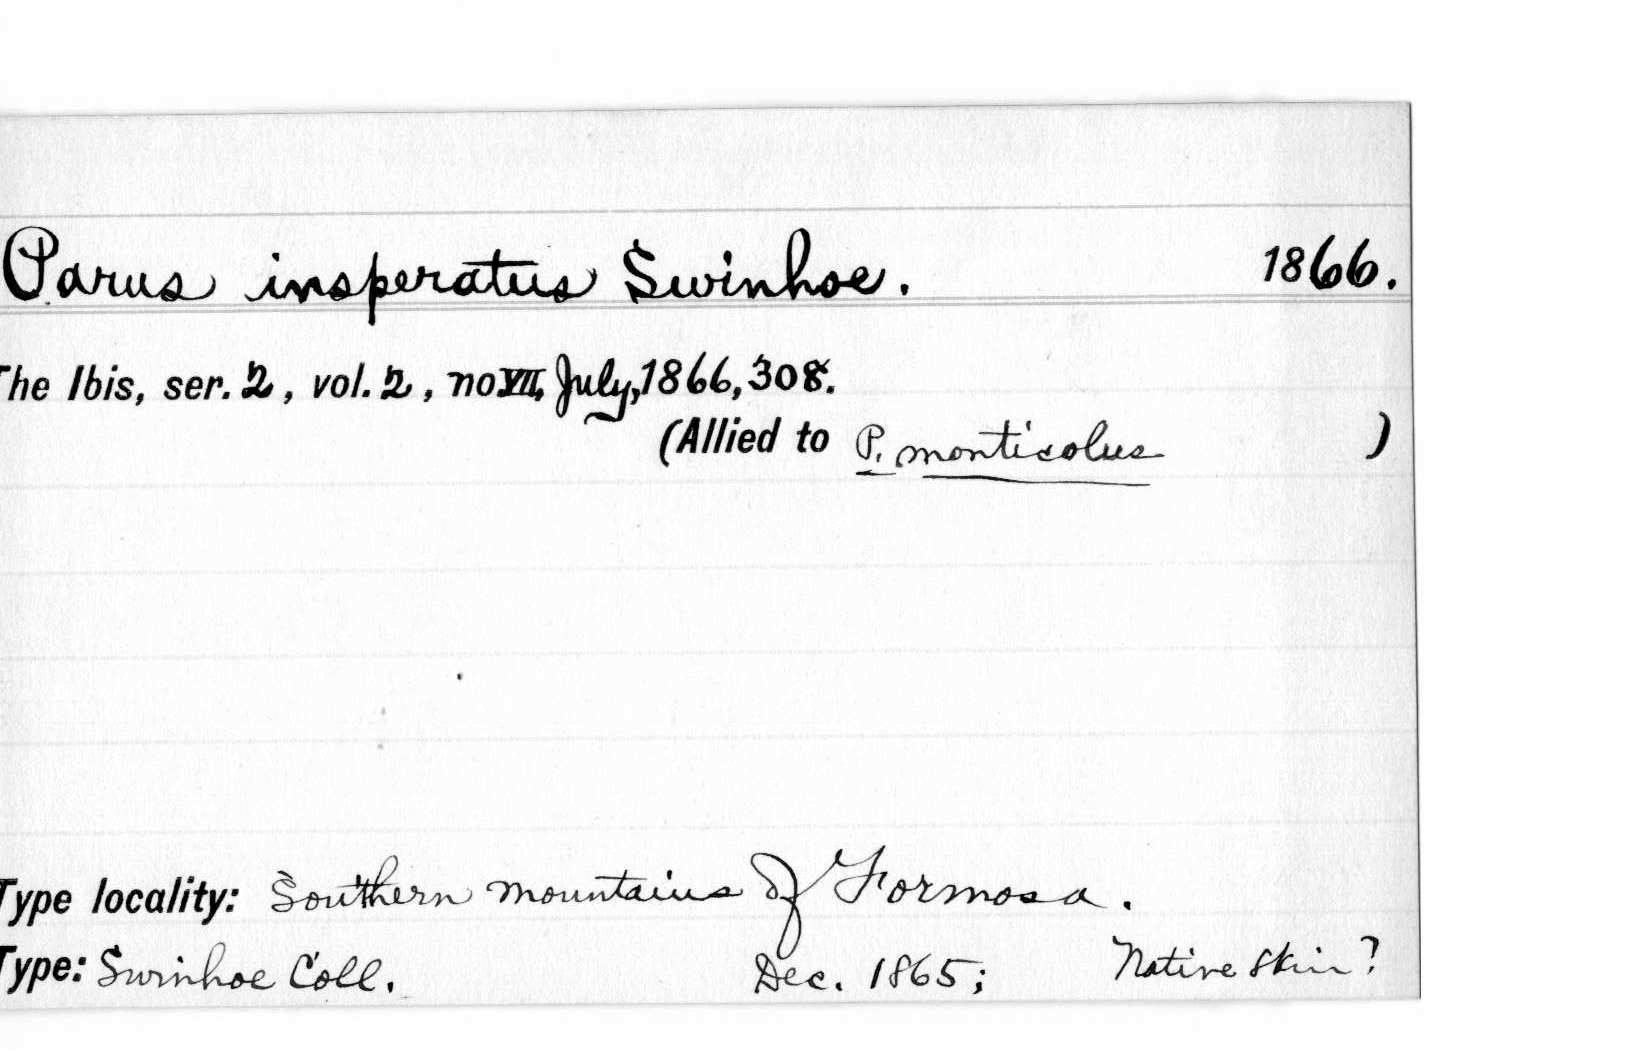 Parus insperatus Swinhoe. 1866.
The Ibis, ser. 2, vol. 2, no VII, July, 1866, 308.
(Allied to P. monticolus )
Type locality: Southern mountains of Formosa.
Type: Swinhoe Coll. Dec. 1865; Native skin?